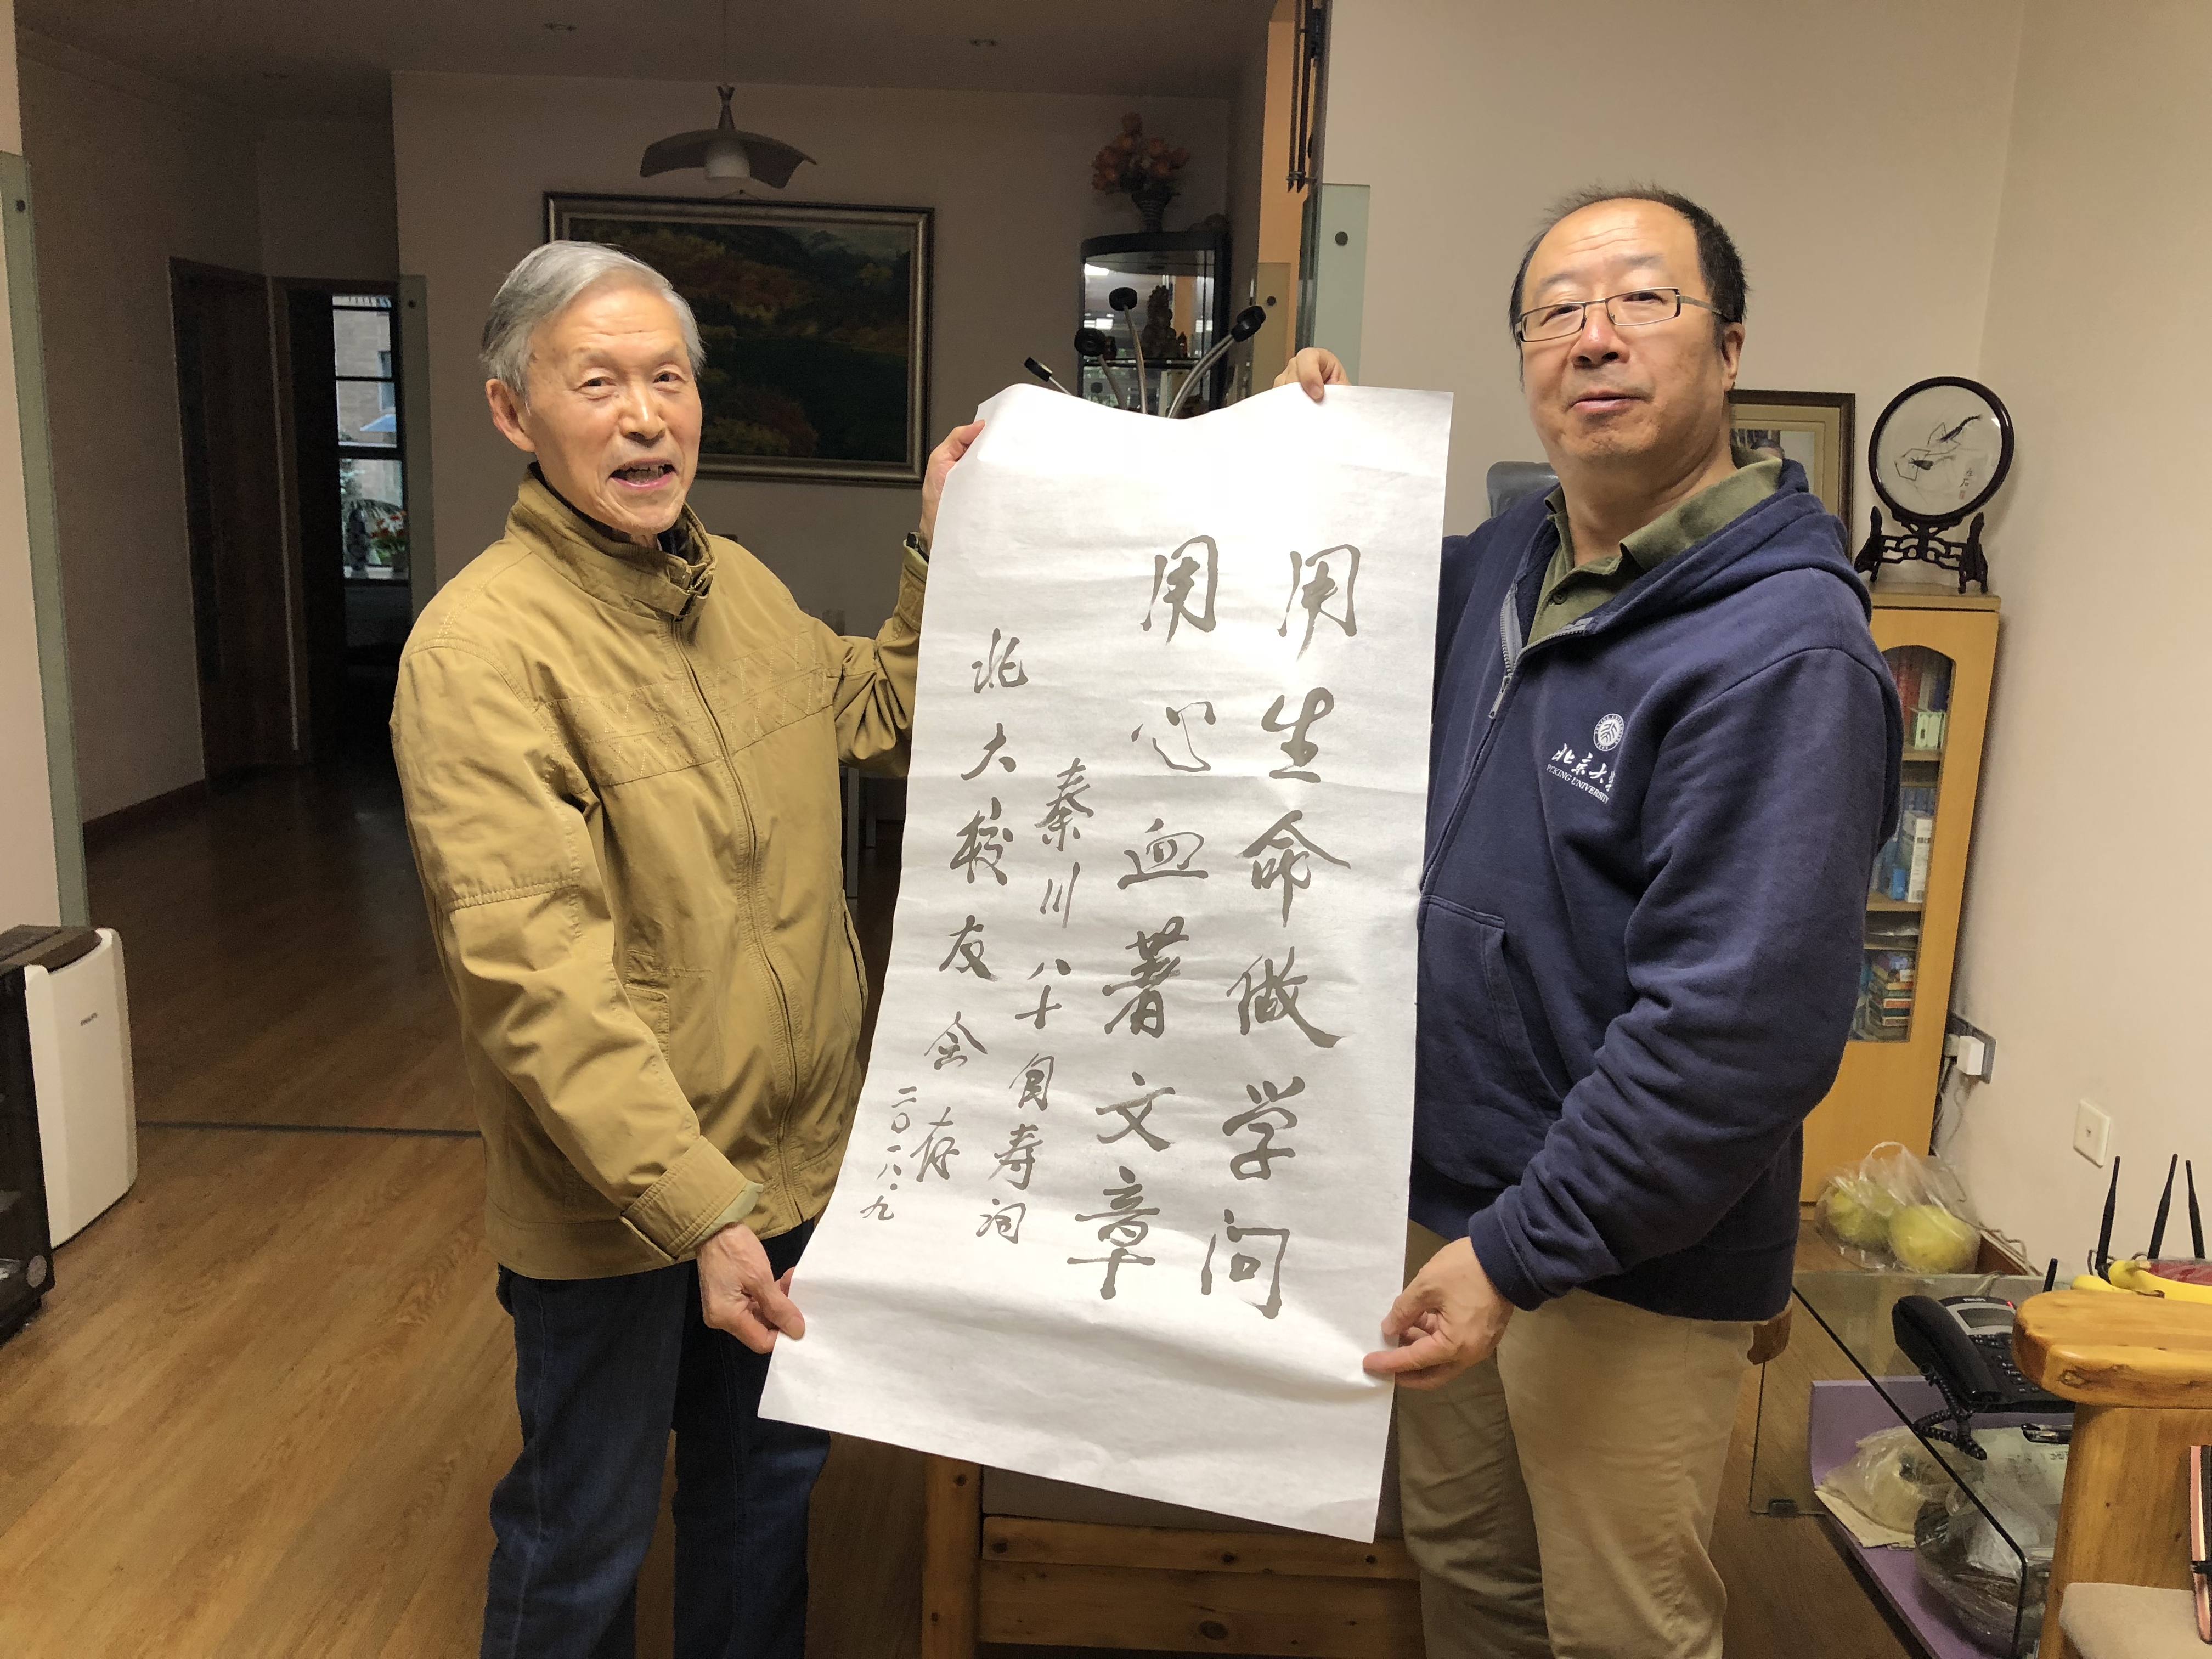 用生命做学问
用心血著文章
秦川八十自寿词
北大校友会存
二〇一八.九
北京大学
PEKING UNIVERSITY